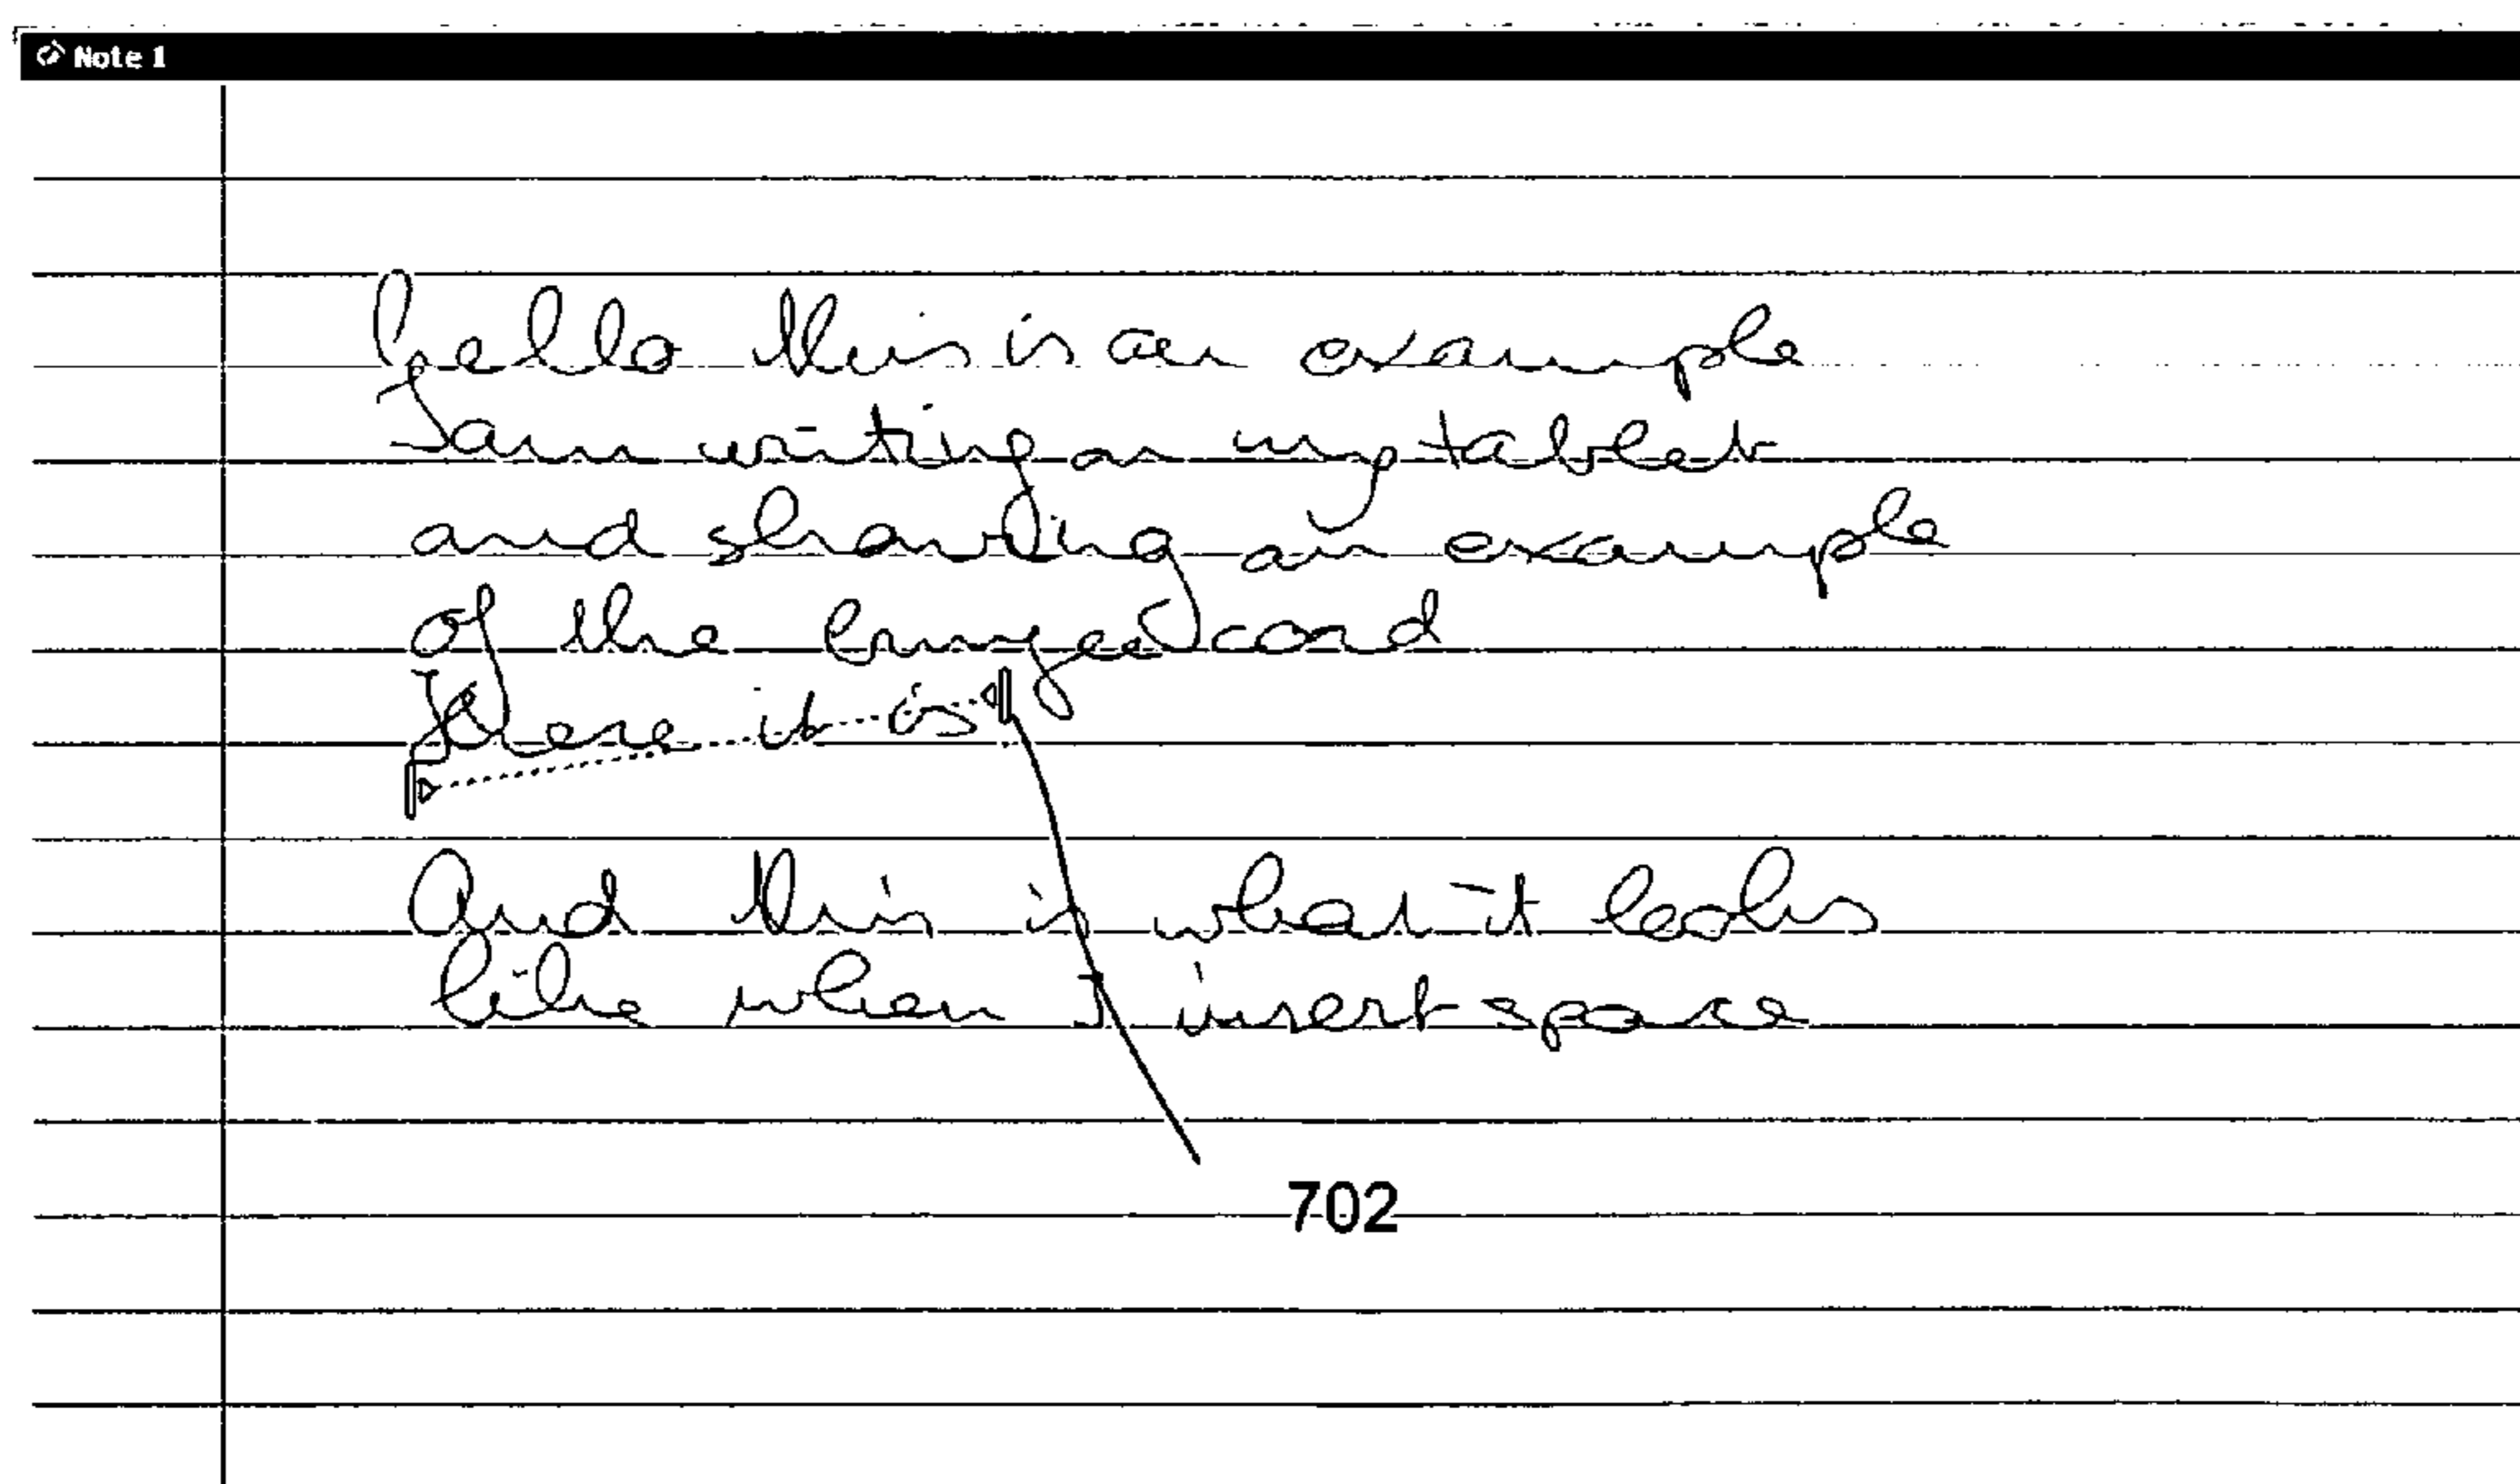 Note 1
hello this is an example
I am writing on my tablet
and sharing an example
of the card
Here it is
And this is what it looks
like when I insert space
702